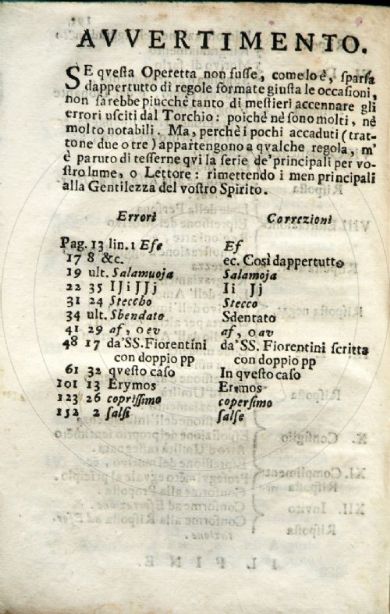 AVVERTIMENTO.
SE qvesta Operetta non fusse, come lo è, sparsa
dappertutto di regole formate giusta le occasioni,
non sarebbe piucchè tanto di mestieri accennare gli
errori usciti dal Torchio: poichè nè sono molti, nè
molto notabili. Ma, perchè i pochi accaduti (trat-
tone due o tre) appartengono a qvalche regola, m'
è paruto di tesserne qvi la serie de' principali per vo-
stro lume, o Lettore: rimettendo i men principali
alla Gentilezza del vostro Spirito.
Errori Correzioni
Pag. 13 lin. 1 Efe Ef
17 8 &c. ec. Così dappertutto
19 ult. Salamuoja Salamoja
22 35 IJi JJj Ii Jj
31 24 Stecebo Stecco
34 ult. Sbendato Sdentato
41 29 af, o ev af, o av
48 17 da'SS. Fiorentini da'SS. Fiorentini scritta
con doppio pp con doppio pp
61 32 questo caso In qvesto caso
101 13 Erymos Eremos
123 26 coprissimo copersimo
152 2 salsi salse